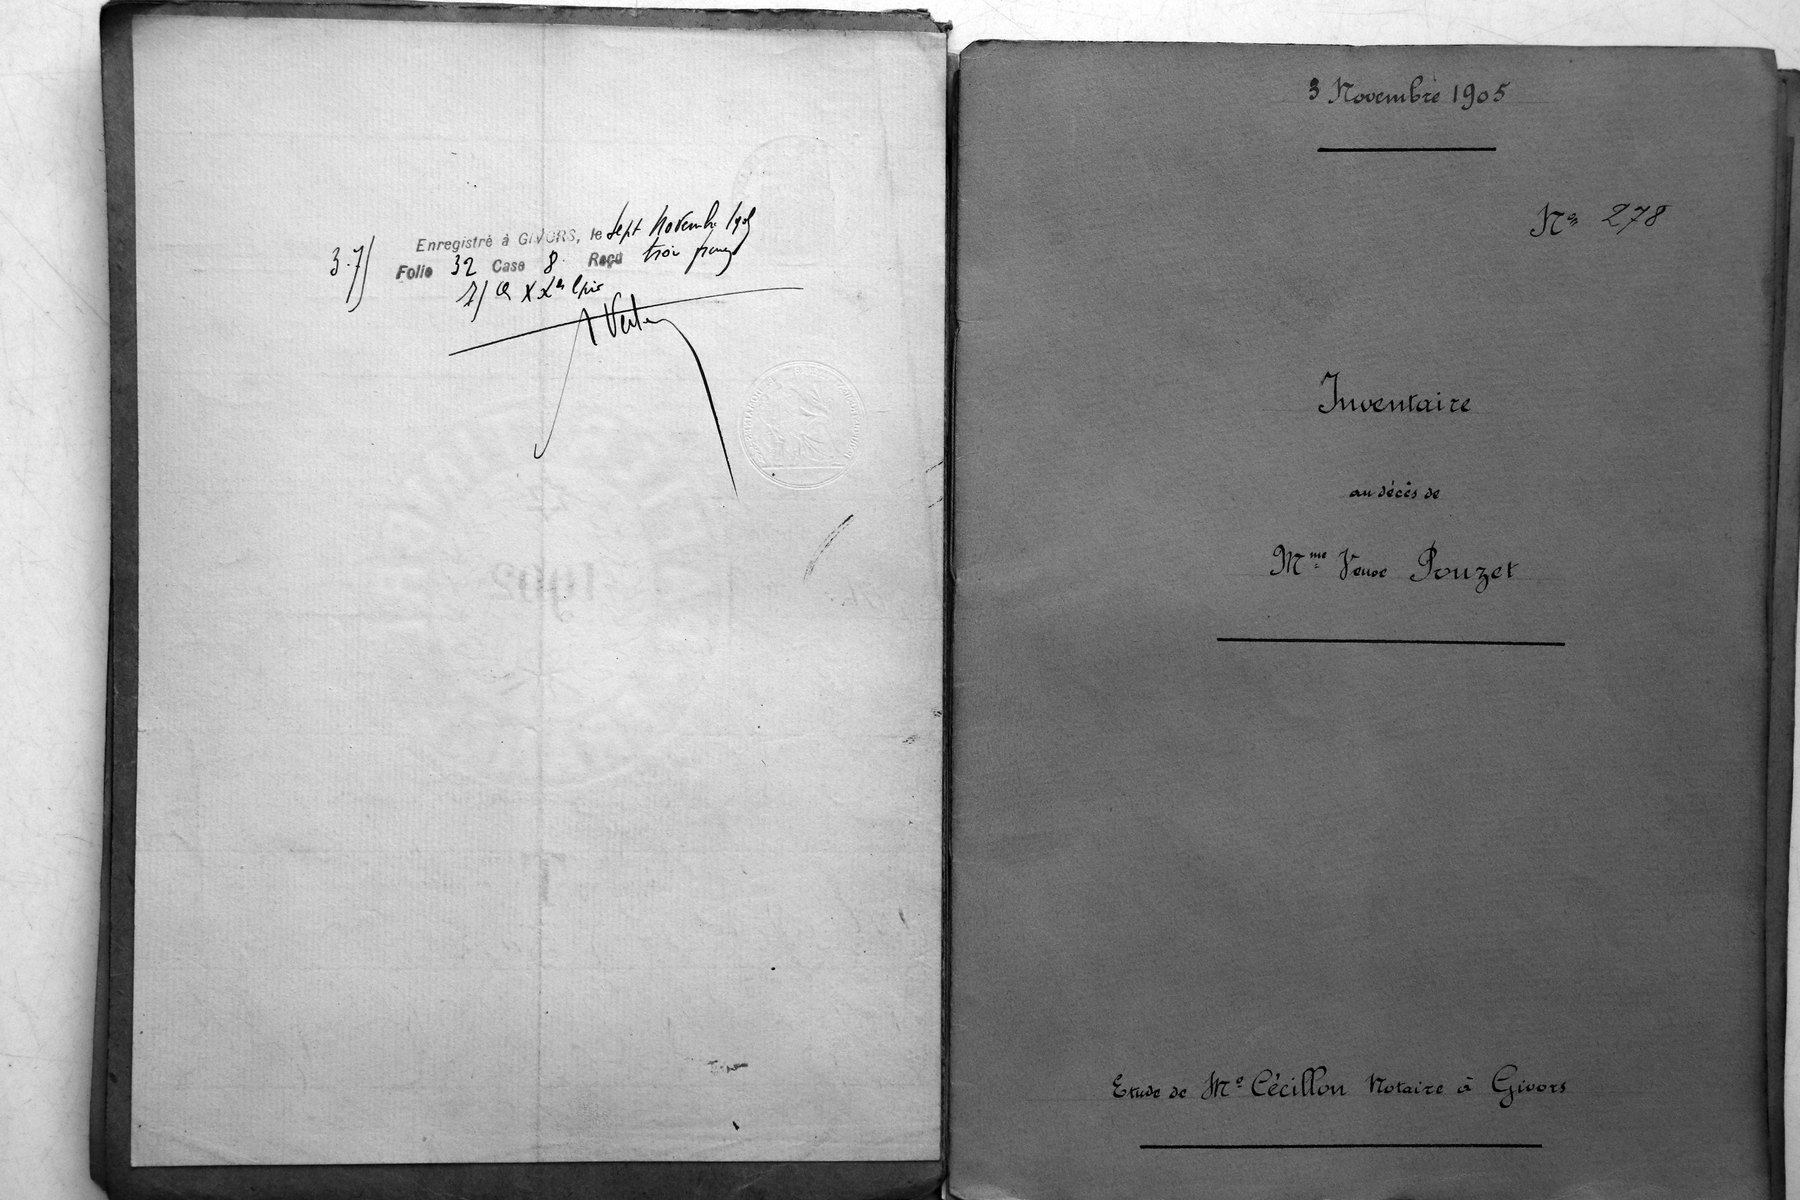 Enregistré à GIVORS, le Sept Novembre 1905
3.75 Folio 32 Case 8 Reçu trois francs
1902
3 Novembre 1905
N° 278
Inventaire
au décès de
Mme Veuve Pouzet
Etude de Me Cécillon Notaire à Givors